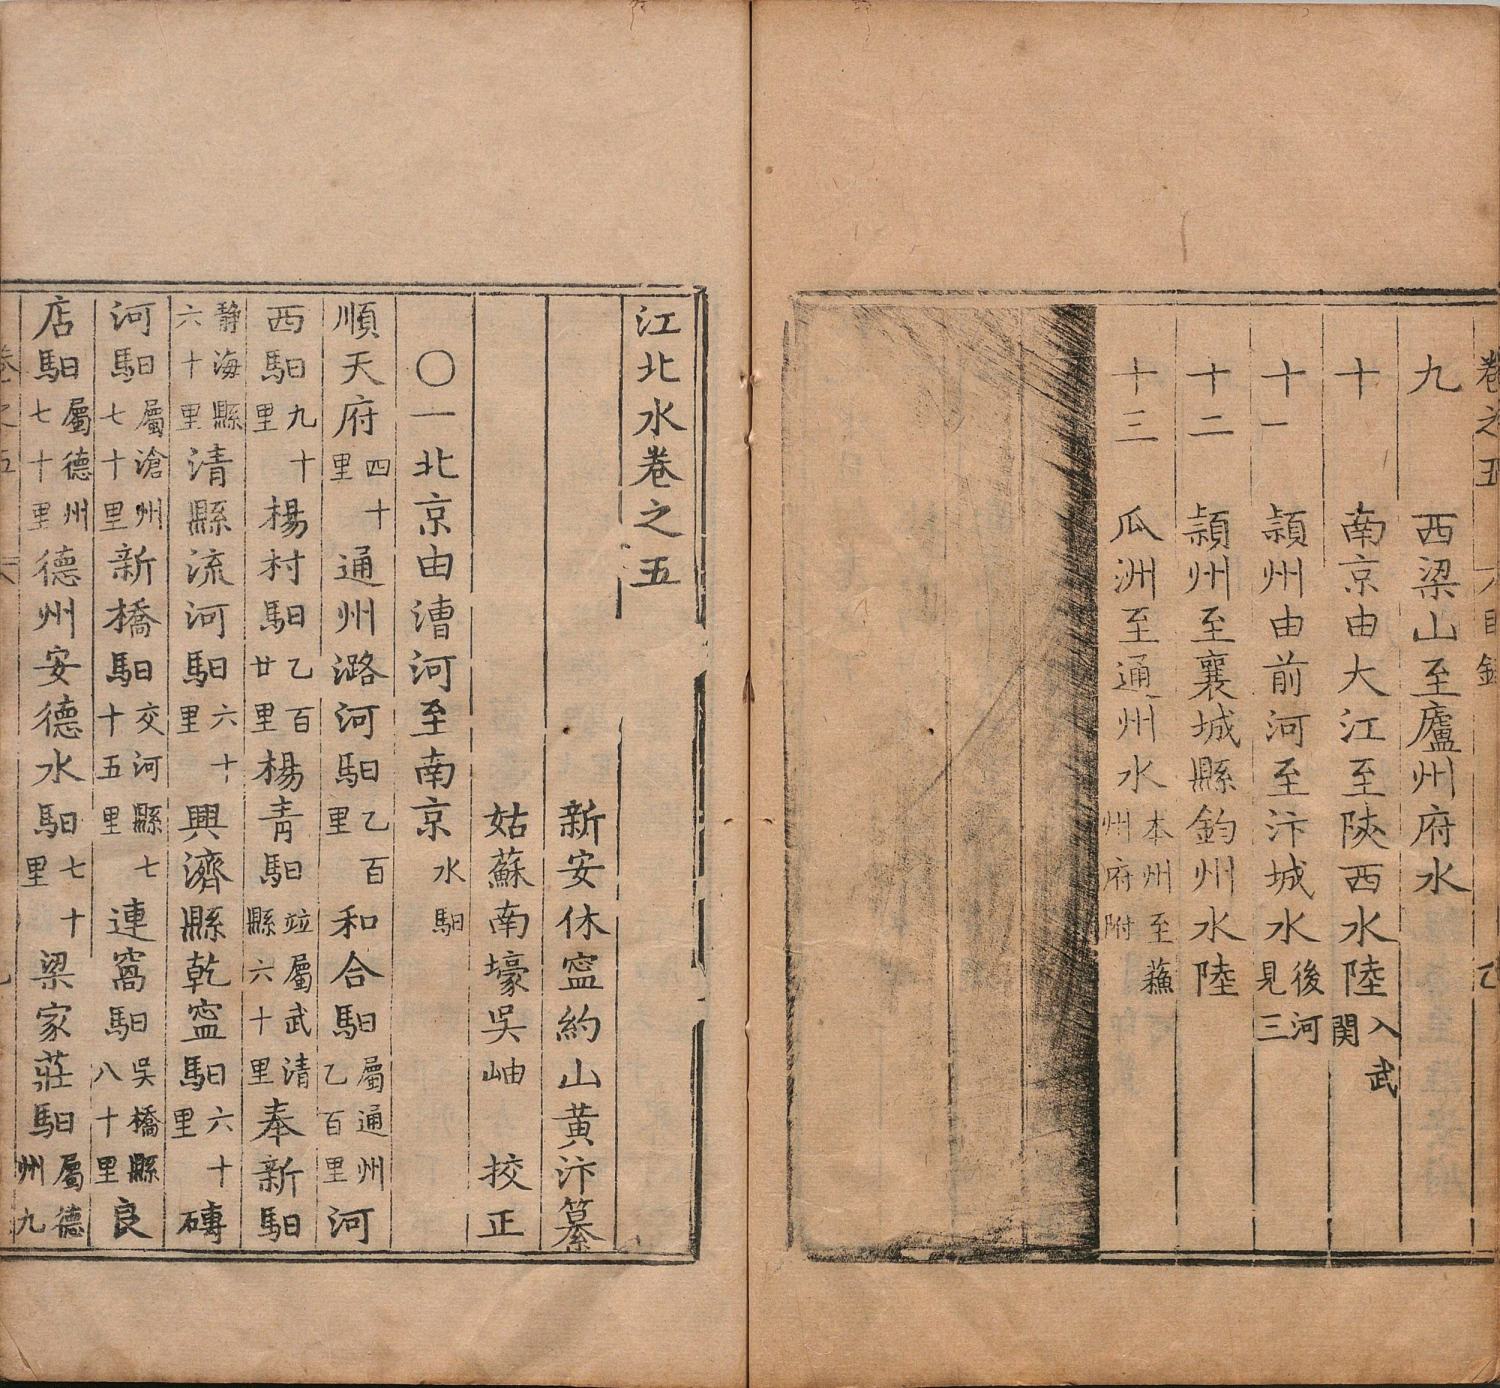 九 西梁山至廬州府水
十 南京由大江至陝西水陸入武関
十一 潁州由前河至汴城水後河見三
十二 潁州至襄城縣鈞州水陸
十三 瓜洲至通州水本州至蘇州府附
江北水卷之五
新安休寍約山黄汴纂
姑蘇南壕吳岫 挍正
〇一北京由漕河至南京水馹
順天府四十里 通州潞河馹乙百里 和合馹屬通州乙百里河
西馹九十里楊村馹乙百廿里楊青馹竝屬武清縣六十里奉新馹
靜海縣六十里清縣流河馹六十里興濟縣乾寍馹六十里磚
河馹屬滄州七十里新橋馹交河縣七十五里連窩馹吳橋縣八十里良
店馹屬德州七十里德州安德水馹七十里梁家莊馹屬德州九